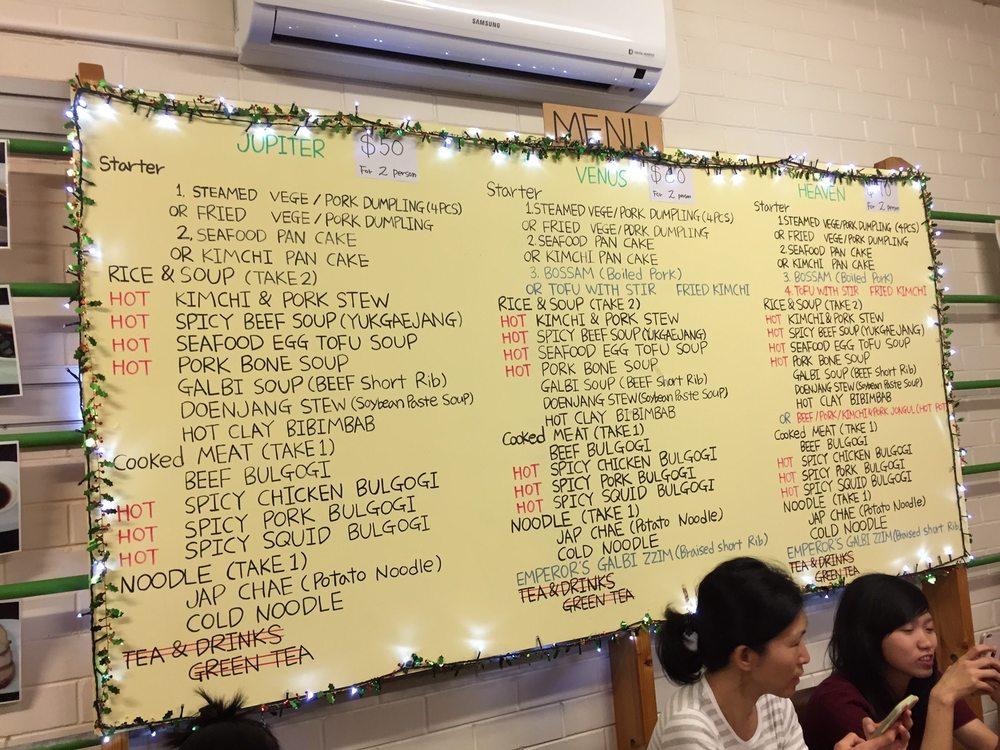 SAMSUNG
MENU
JUPITER
$50
For 2 person
Starter
1. STEAMED VEGE/PORK DUMPLING (4PCS)
OR FRIED VEGE/PORK DUMPLING
2. SEAFOOD PAN CAKE
OR KIMCHI PAN CAKE
RICE & SOUP (TAKE 2)
HOT KIMCHI & PORK STEW
HOT SPICY BEEF SOUP (YUKGAEJANG)
HOT SEAFOOD EGG TOFU SOUP
HOT PORK BONE SOUP
GALBI SOUP (BEEF Short Rib)
DOENJANG STEW (Soybean Paste Soup)
HOT CLAY BIBIMBAB
Cooked MEAT (TAKE 1)
BEEF BULGOGI
HOT SPICY CHICKEN BULGOGI
HOT SPICY PORK BULGOGI
HOT SPICY SQUID BULGOGI
NOODLE (TAKE 1)
JAP CHAE (Potato Noodle)
COLD NOODLE
TEA & DRINKS
GREEN TEA
VENUS
For 2 person
Starter
1. STEAMED VEGE/PORK DUMPLING (4PCS)
OR FRIED VEGE/PORK DUMPLING
2. SEAFOOD PAN CAKE
OR KIMCHI PAN CAKE
3. BOSSAM (Boiled Pork)
OR TOFU WITH STIR FRIED KIMCHI
RICE & SOUP (TAKE 2)
HOT KIMCHI & PORK STEW
HOT SPICY BEEF SOUP (YUKGAEJANG)
HOT SEAFOOD EGG TOFU SOUP
HOT PORK BONE SOUP
GALBI SOUP (BEEF Short Rib)
DOENJANG STEW (Soybean Paste Soup)
HOT CLAY BIBIMBAB
Cooked MEAT (TAKE 1)
BEEF BULGOGI
HOT SPICY CHICKEN BULGOGI
HOT SPICY PORK BULGOGI
HOT SPICY SQUID BULGOGI
NOODLE (TAKE 1)
JAP CHAE (Potato Noodle)
COLD NOODLE
EMPEROR'S GALBI ZZIM (Braised short Rib)
TEA & DRINKS
GREEN TEA
HEAVEN
For 2 person
Starter
1. STEAMED VEGE/PORK DUMPLING (4PCS)
OR FRIED VEGE/PORK DUMPLING
2. SEAFOOD PAN CAKE
OR KIMCHI PAN CAKE
3. BOSSAM (Boiled Pork)
4. TOFU WITH STIR FRIED KIMCHI
RICE & SOUP (TAKE 2)
HOT KIMCHI & PORK STEW
HOT SPICY BEEF SOUP (YUKGAEJANG)
HOT SEAFOOD EGG TOFU SOUP
HOT PORK BONE SOUP
GALBI SOUP (BEEF Short Rib)
DOENJANG STEW (Soybean Paste Soup)
HOT CLAY BIBIMBAB
OR BEEF/PORK/KIMCHI & PORK JONGUL (HOT POT
Cooked MEAT (TAKE 1)
BEEF BULGOGI
HOT SPICY CHICKEN BULGOGI
HOT SPICY PORK BULGOGI
HOT SPICY SQUID BULGOGI
NOODLE (TAKE 1)
JAP CHAE (Potato Noodle)
COLD NOODLE
EMPEROR'S GALBI ZZIM (Braised short Rib)
TEA & DRINKS
GREEN TEA